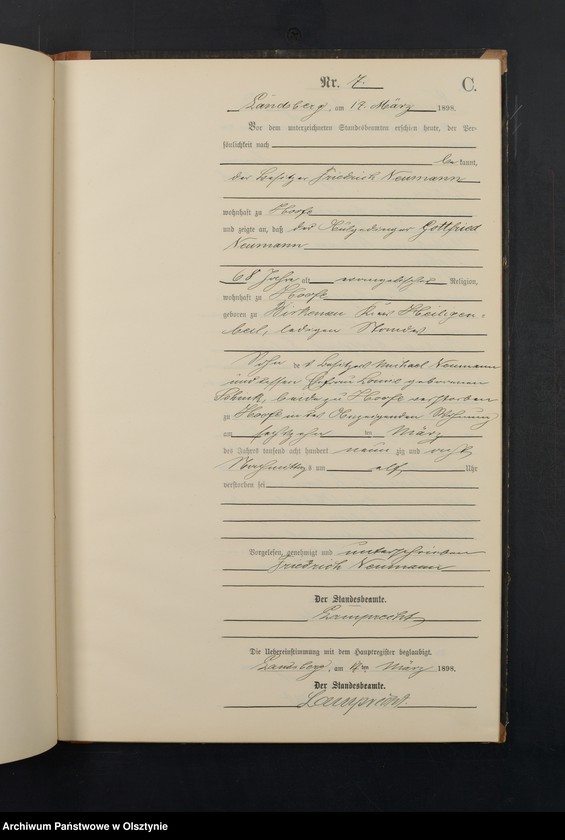 Nr. 7.
C.
Landsberg, am 19. März 1898.
Vor dem unterzeichneten Standesbeamten erschien heute, der Per-
sönlichkeit nach
be kannt,
der Besitzer Friedrich Neumann
wohnhaft zu Hoofe
und zeigte an, daß der Gottfried
Neumann
68 Jahre alt evangelischer Religion,
wohnhaft zu Hoofe
geboren zu Birkenau Kreis Heiligen-
beil, ledigen Standes
Sohn des Besitzers Michael Neumann
und dessen Ehefrau geborenen
beide zu Hoofe verstorben
zu Hoofe in des Anzeigenden Wohnung
am ten März
des Jahres tausend acht hundert neun zig und acht
Nachmittags um elf Uhr
verstorben sei
Vorgelesen, genehmigt und unterschrieben
Friedrich Neumann
Der Standesbeamte.
Lamprecht
Die Uebereinstimmung mit dem Hauptregister beglaubigt.
Landsberg, am März 1898.
Der Standesbeamte.
Lamprecht.
Archiwum Państwowe w Olsztynie